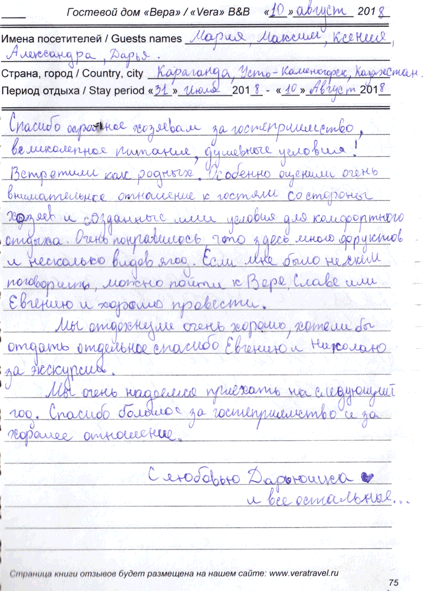 Гостевой дом «Вера» / «Vera» B&B «10» август 2018
Имена посетителей / Guests names Мария, Максим, Ксения,
Александра, Дарья.
Страна, город / Country, city Караганда, Усто-Каменогорск, Казахстан.
Период отдыха / Stay period «31» июля 2018 - «10» Август 2018
Спасибо огромное хозяевам за гостеприимство,
великолепное питание, душевные условия!
Встретили как родных. Особенно оценили очень
внимательное отношение к гостям со стороны
хозяев и созданные ими условия для комфортного
отдыха. Очень понравилось что здесь много фруктов
и несколько видов ягод. Если мне было не с ким
поговорить, можно пойти к Вере, Славе или
Евгению и хорошо провести.
Мы отдохнули очень хорошо, хотели бы
отдать отдельное спасибо Евгению и Николаю
за экскурсии.
Мы очень надеемся приехать на следующий
год. Спасибо большое за гостеприимство и за
хорошее отношение.
С любовью Дарьюшка
и все остальные...
Страница книги отзывов будет размещена на нашем сайте: www.veratravel.ru
75